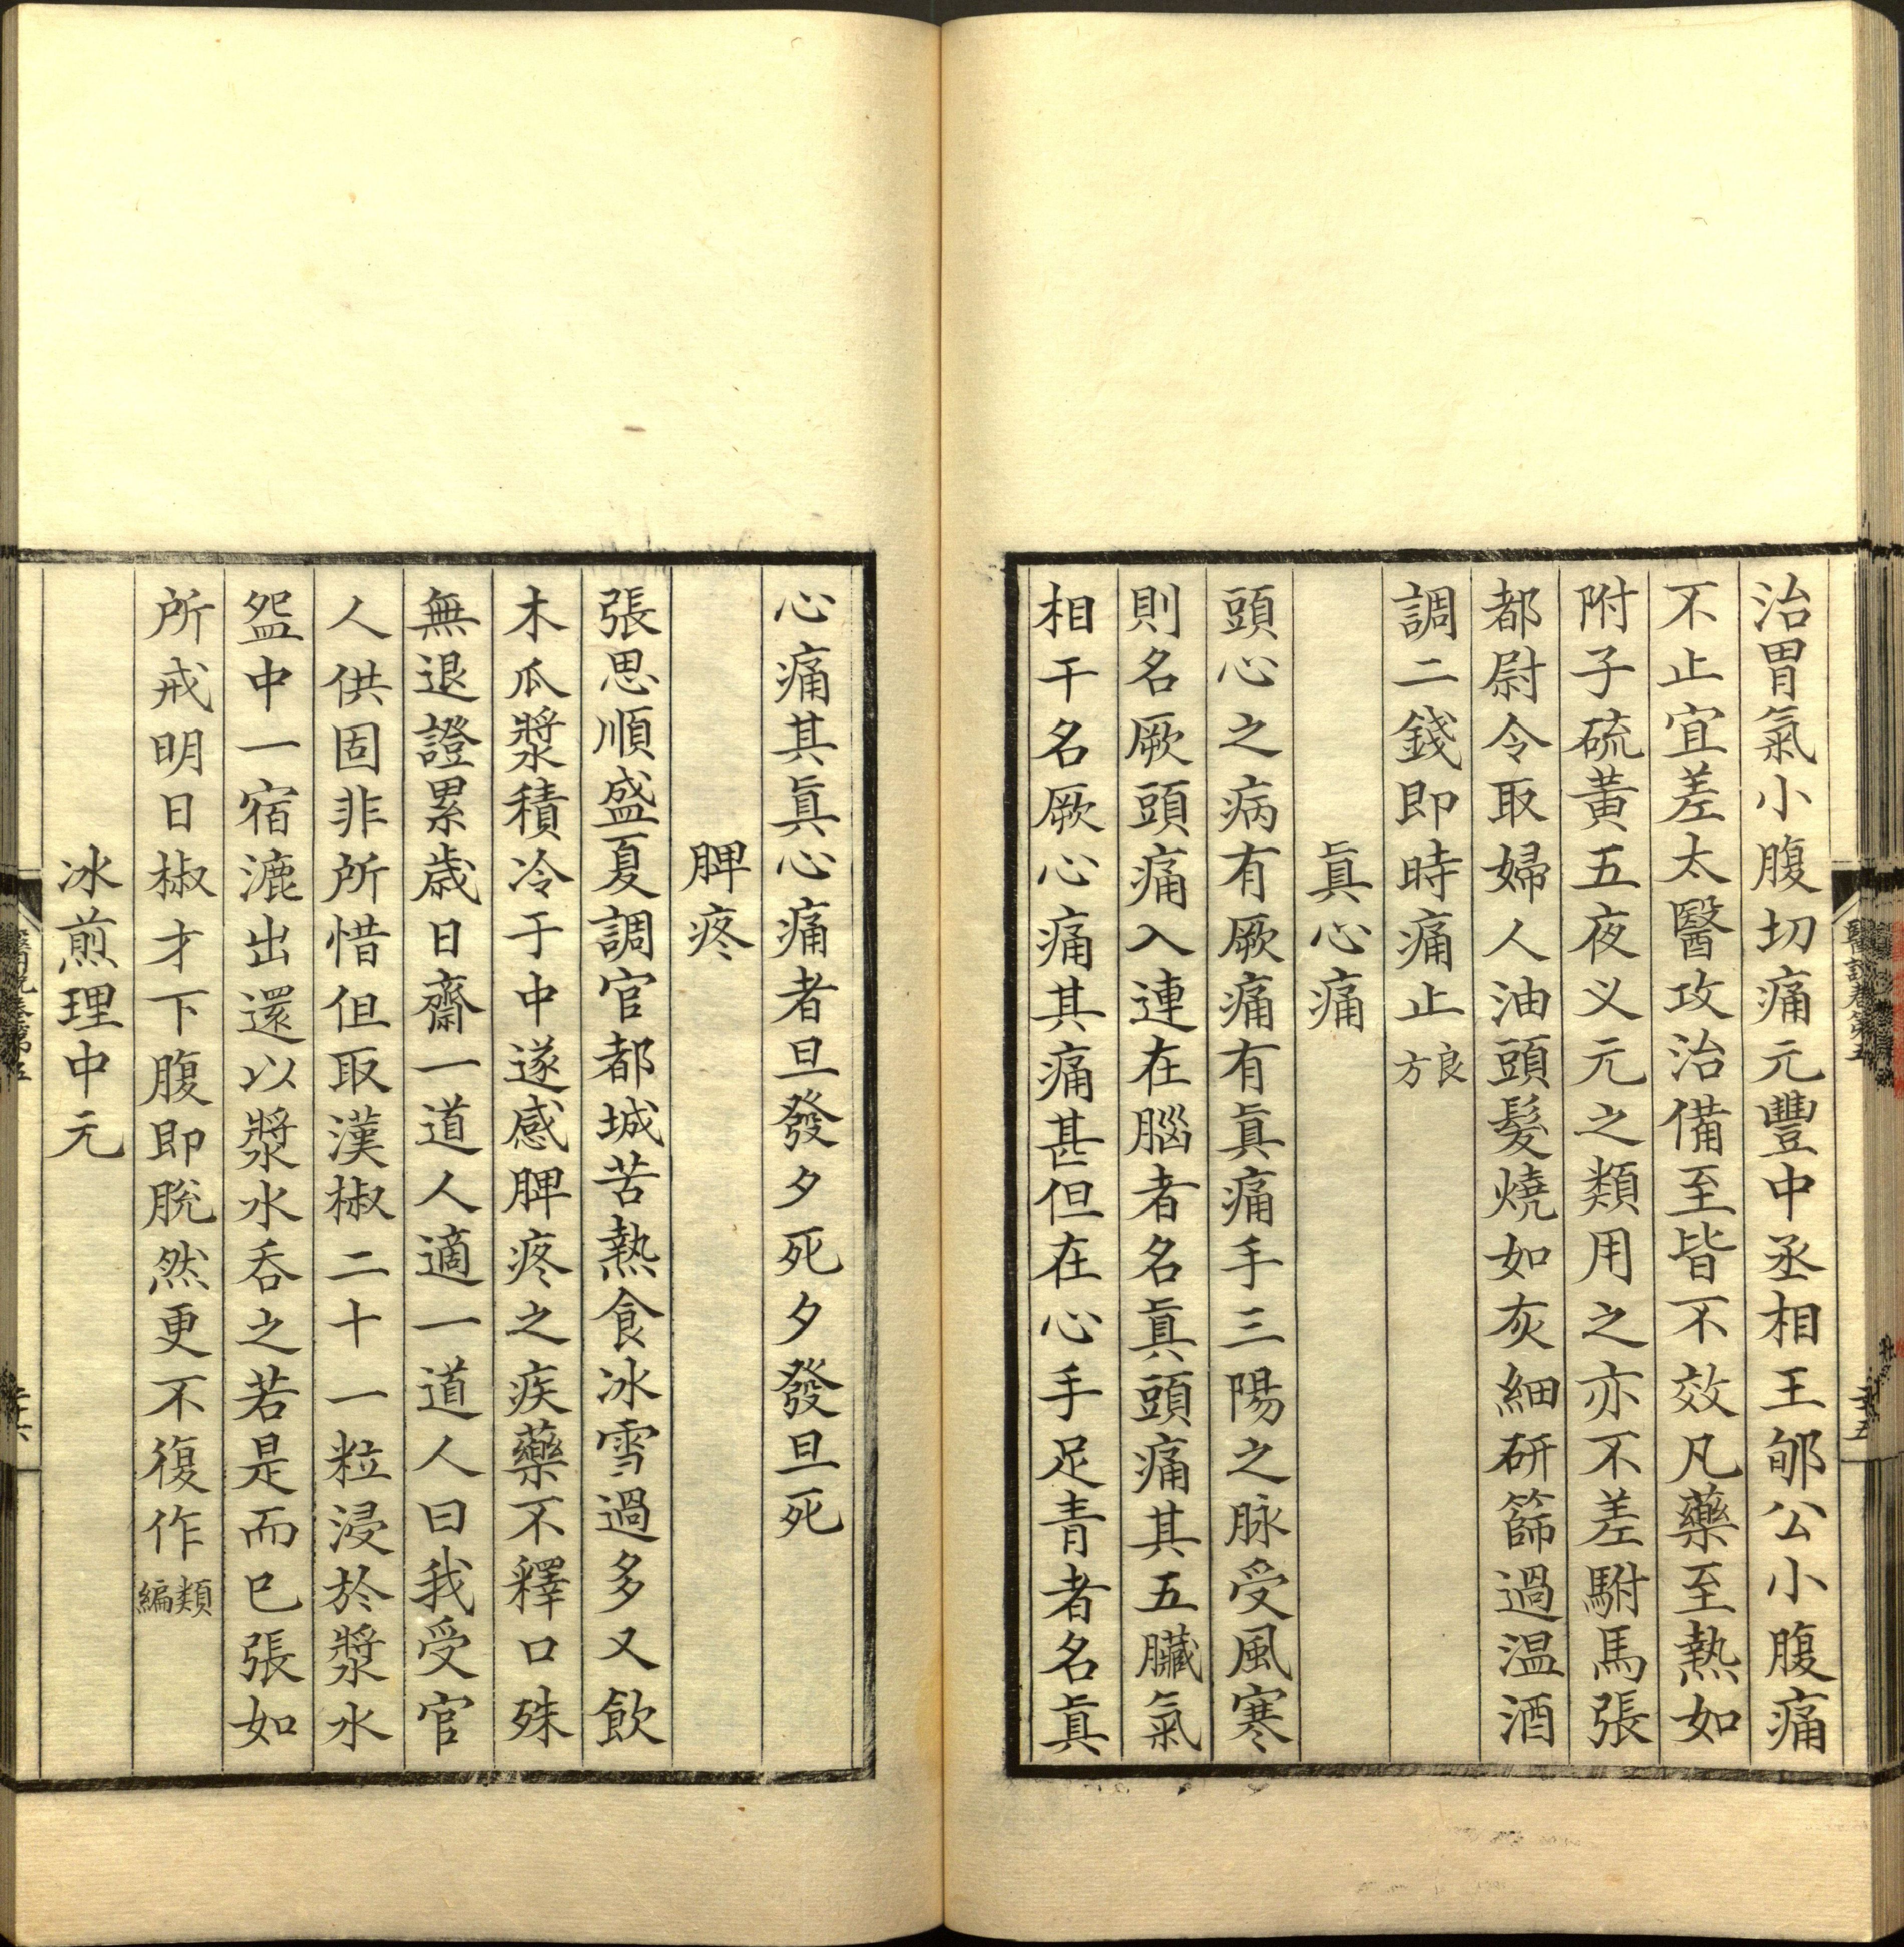 治胃氣小腹切痛元豐中丞相王郇公小腹痛
不止宜差太醫攻治備至皆不效凡藥至熱如
附子硫黃五夜义元之類用之亦不差駙馬張
都尉令取婦人油頭髮燒如灰細研篩過温酒
調二錢即時痛止良方
真心痛
頭心之病有厥痛有真痛手三陽之脉受風寒
則名厥頭痛入連在腦者名真頭痛其五臟氣
相干名厥心痛其痛甚但在心手足青者名真
心痛其真心痛者旦發夕死夕發旦死
脾疼
張思順盛夏調官都城苦熱食冰雪過多又飲
木瓜漿積冷于中遂感脾疼之疾藥不釋口殊
無退證累歲日齋一道人適一道人曰我受官
人供固非所惜但取漢椒二十一粒浸於漿水
盌中一宿漉出還以漿水吞之若是而已張如
所戒明日椒才下腹即脫然更不復作類編
冰煎理中元
醫說卷第五